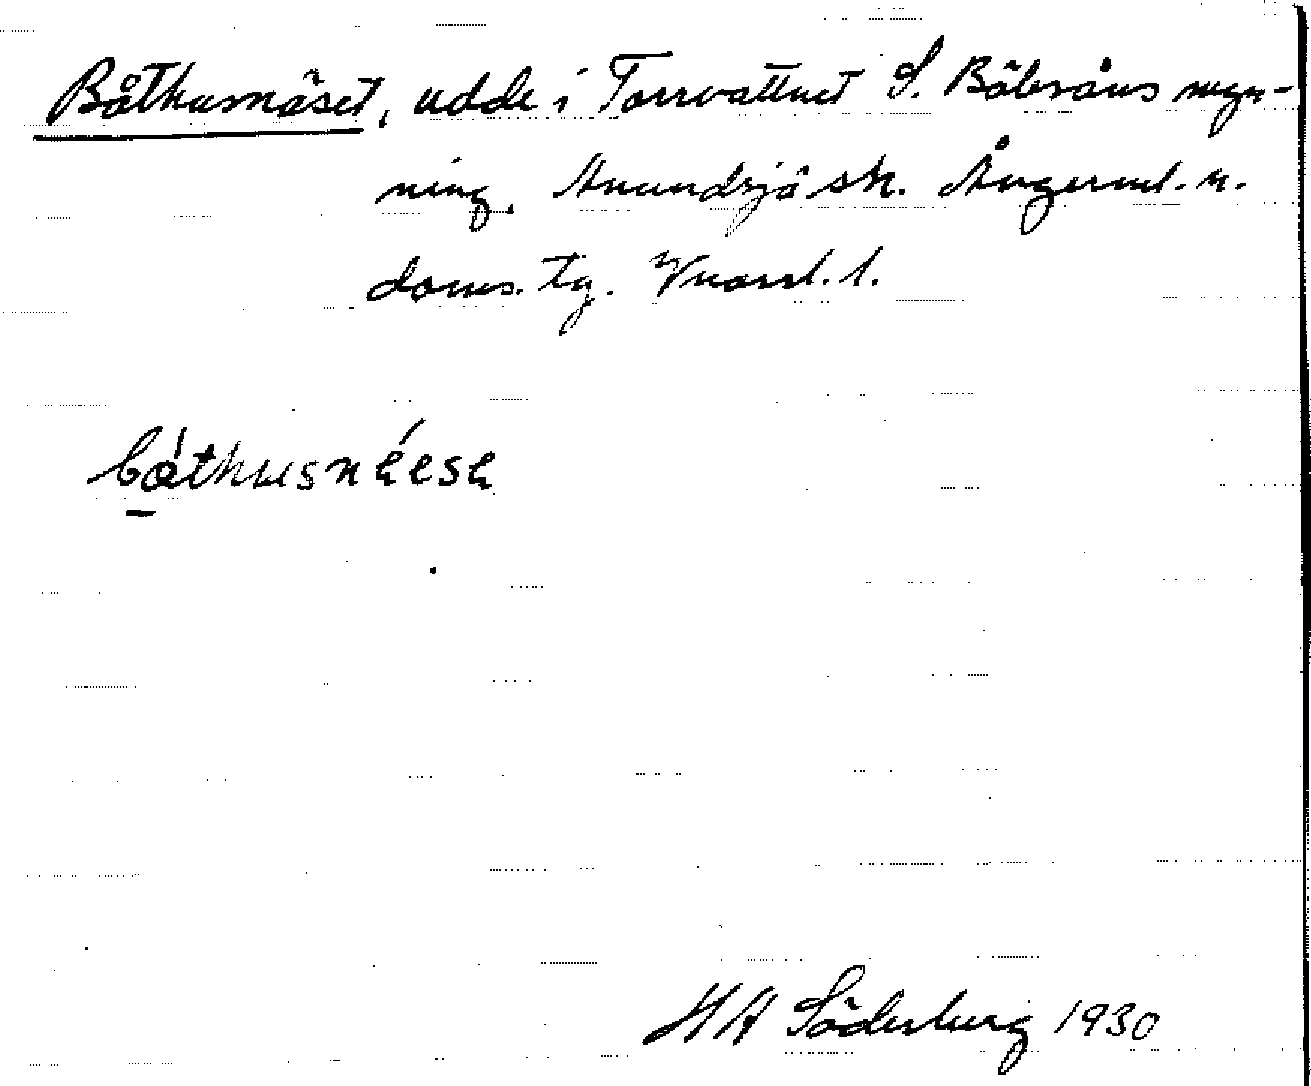 Båthusnäset, udde i Torrvattnet S. Bölesåns myn-
ning, Anundsjö sk. Ångerml. n.
doms. tg. Vnorrl. l.
båthusnéese
H A Söderberg 1930